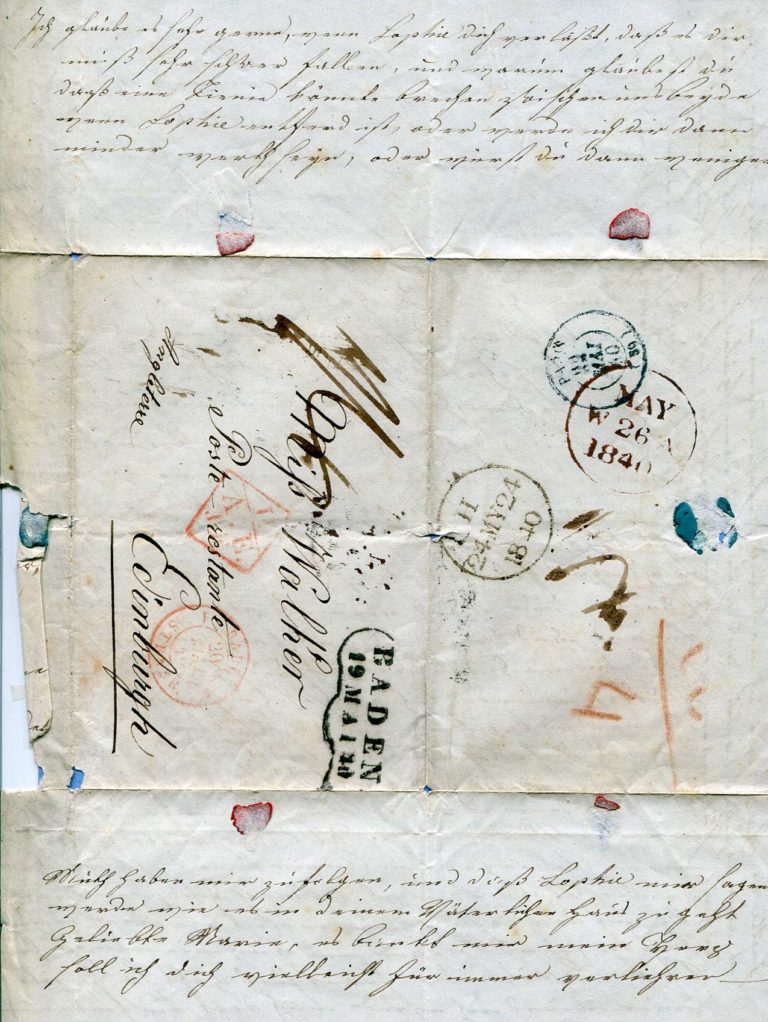 Ich glaube es sehr gerne, wenn Sophie dich verlaßt, daß es dir
muß sehr schwer fallen, und warum glaubest du
daß eine könnte brechen zwischen uns beyde
wenn Sophie entfernd ist, oder werde ich dir dann
minder werth seyn, oder wirst du dann weniger
Miß Walker
Poste restante
Edinburgh
Angleterre
BADEN
19 MAI 40
MAY
W 26 A
1840
24 MY 24
1840
PARIS
4
Muth haben mir zu folgen, und daß Sophie mir sagen
werde wie es in deinem Väterlichen Haus zu geht
Geliebte Marie, es mir mein Herz
soll ich dich vielleicht für immer verliehren